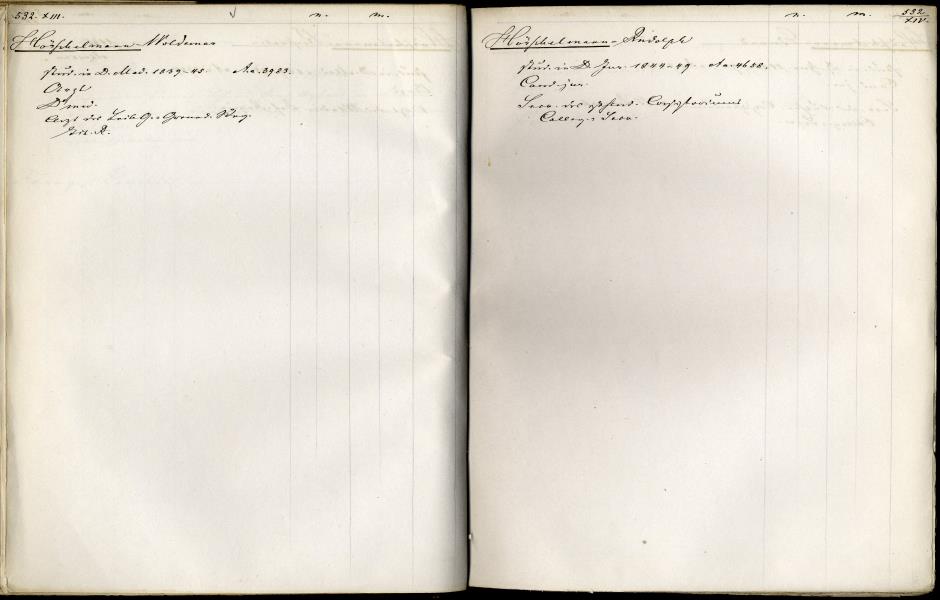 532. XIII. n. m.
Höppelmann Woldemar
stud. in D. Med. 1839-45. No. 3983.
Arzt
Dr med.
Arzt des Leib G. Grenad. Rg.
n. m. 532 XIV.
Höppelmann Rudolph
stud. in D. Jur. 1844-49. No. 4658.
Cand. jur.
Secr. des Consistoriums
Colleg. Secr.